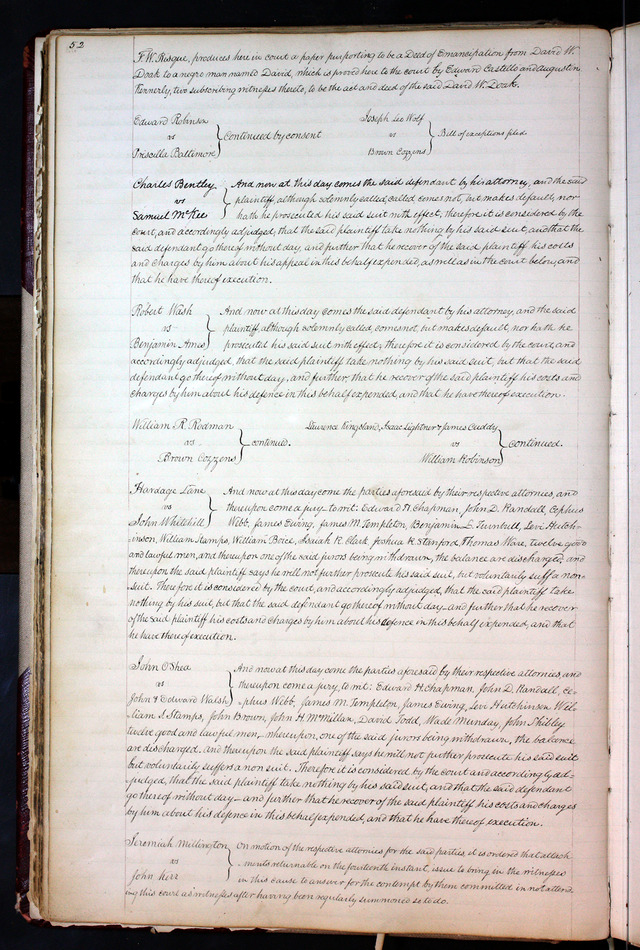 52
F. W. Risque, produces here in court a paper purporting to be a Deed of Emancipation from David W.
Doak to a negro man named David, which is proved here to the court by Edward Castello and Augustin
Kennerly, two subscribing witnesses thereto, to be the act and deed of the said David W. Doak.
Edward Robinson
vs
Priscilla Baltimore
Continued by consent
Joseph Leo Wolf
vs
Brown Cozzens
Bill of exceptions filed
Charles Bentley
vs
Samuel McKee
And now at this day comes the said defendant by his attorney, and the said
plaintiff, although solemnly called, called comes not, but makes default, nor
hath he prosecuted his said suit with effect, therefore it is considered by the
court, and accordingly adjudged, that the said plaintiff take nothing by his said suit, and that the
said defendant go thereof without day, and further that he recover of the said plaintiff his costs
and charges by him about his appeal in this behalf expended, as well as in the court below, and
that he have thereof execution.
Robert Wash
vs
Benjamin Ames
And now at this day comes the said defendant by his attorney, and the said
plaintiff, although solemnly called, comes not, but makes default, nor hath he
prosecuted his said suit with effect, therefore it is considered by the court, and
accordingly adjudged, that the said plaintiff take nothing by his said suit, but that the said
defendant go thereof without day, and further, that he recover of the said plaintiff his costs and
charges by him about his defence in this behalf expended, and that he have thereof execution.
William R. Rodman
vs
Brown Cozzens
continued.
Lawrence Kingsland, Isaac Lightner & James Cuddy
vs
William Robinson
continued.
Hardage Lane
vs
John Whitehill
And now at this day come the parties aforesaid by their respective attornies, and
thereupon come a jury to wit: Edward H. Chapman, John D. Randall, Cephus
Webb, James Ewing, James M. Templeton, Benjamin L. Turnbull, Levi Hutch-
inson, William Stamps, William Boice, Isaiah K. Clark, Joshua K. Stanford, Thomas Ware, twelve good
and lawful men, and thereupon one of the said jurors being withdrawn, the balance are discharged, and
thereupon the said plaintiff says he will not further prosecute his said suit, but voluntarily suff a non-
suit. Therefore it is considered by the court, and accordingly adjudged, that the said plaintiff take
nothing by his suit, but that the said defendant go thereof without day and further that he recover
of the said plaintiff his costs and charges by him about his defence in this behalf expended, and that
he have thereof execution.
John O'Shea
vs
John & Edward Walsh
And now at this day come the parties aforesaid by their respective attornies, and
thereupon come a jury, to wit: Edward H. Chapman, John D. Randall, Ce-
phus Webb, James M. Templeton, James Ewing, Levi Hutchinson, Wil-
liam S. Stamps, John Brown, John H. McMillan, David Todd, Wade Munday, John Shibley
twelve good and lawful men, whereupon, one of the said jurors being withdrawn, the balance
are discharged. And thereupon the said plaintiff says he will not further prosecute his said suit
but voluntarily suffers a non suit. Therefore it is considered by the court and accordingly ad-
judged, that the said plaintiff take nothing by his said suit, and that the said defendant
go thereof without day and further that he recover of the said plaintiff his costs and charges
by him about his defence in this behalf expended, and that he have thereof execution.
Jeremiah Millington
vs
John Kerr
On motion of the respective attornies for the said parties, it is ordered that attach
ments returnable on the fourteenth instant, issue to bring in the witnesses
in this cause to answer for the contempt by them committed in not attend
ing this court as witnesses after having been regularly summoned so to do.